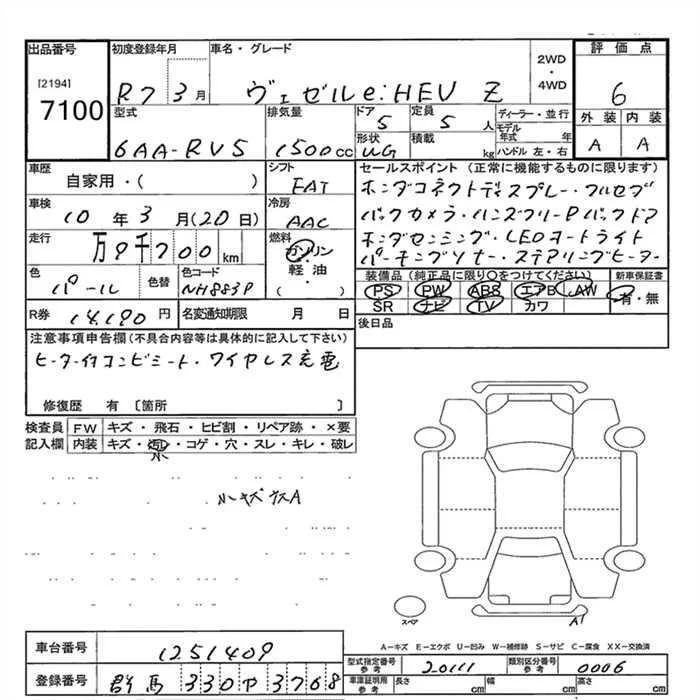 出品番号
[2194]
7100
初度登録年月
R7 3月
車名・グレード
ヴェゼル e:HEV Z
2WD
・
4WD
評価点
6
外装 内装
A A
型式
6AA-RV5
排気量
1500cc
ドア
5
形状
UG
定員
5人
積載
kg
ディーラー・並行
モデル年式 年
ハンドル 左・右
車歴
自家用・( )
車検
10年3月(20日)
走行
万9千700km
色
パール
色替
色コード
NH883P
シフト
FAT
冷房
AAC
燃料
ガソリン
・
軽油
( )
セールスポイント (正常に機能するものに限ります)
ホンダコネクトディスプレー・フルセグ
バックカメラ・ハンズフリーPバックドア
ホンダセンシング・LEDオートライト
パーキングソナー・ステアリングヒーター
装備品(純正品に限り○をつけてください)
PS PW ABS エアB AW
SR ナビ TV カワ
新車保証書
有・無
R券 14,190円
名変通知期限 月 日
後日品
注意事項申告欄(不具合内容等は具体的に記入して下さい)
ヒーター付コンビシート・ワイヤレス充電
修復歴 有 〔箇所 〕
検査員記入欄
FW キズ・飛石・ヒビ割・リペア跡・×要
内装 キズ・汚れ・コゲ・穴・スレ・キレ・破レ
小
小キズ大A
スペア
A1
A-キズ E-エクボ U-凹み W-補修跡 S-サビ C-腐食 XX-交換済
車台番号
1251409
登録番号
群馬 330ヤ3768
型式指定番号
参考
20111
類別区分番号
参考
0006
車庫証明用
参考
長さ cm
幅 cm
高さ cm